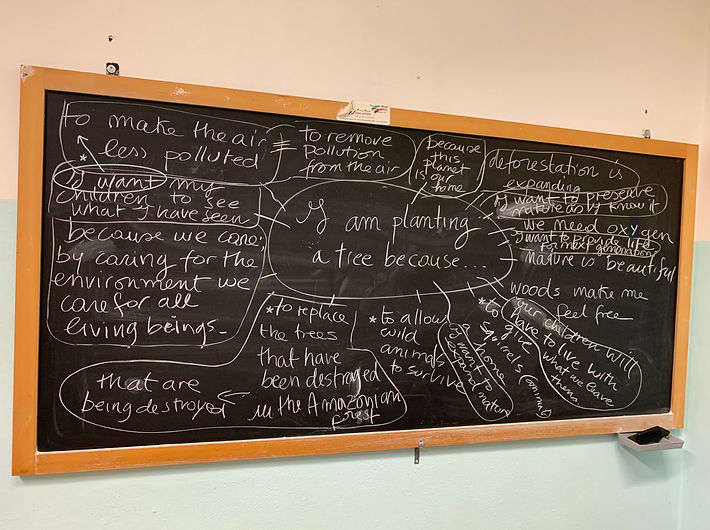 to make the air
* less polluted
=
to remove
pollution
from the air
because
this
planet
is our
home
deforestation is
expanding
I want to preserve
nature as I know it
we need oxygen
I want to provide life
for next generations
nature is beautiful
woods make me
feel free
I want my
children to see
what I have seen
because we care.
by caring for the
environment we
care for all
living beings.
I am planting
a tree because...
* to replace
the trees
that have
been destroyed
in the Amazonian
forest
that are
being destroyed
* to allow
wild
animals
to survive
I want to
expand nature
* to
give
a home
squirrels
our children will
have to live with
what we leave
them